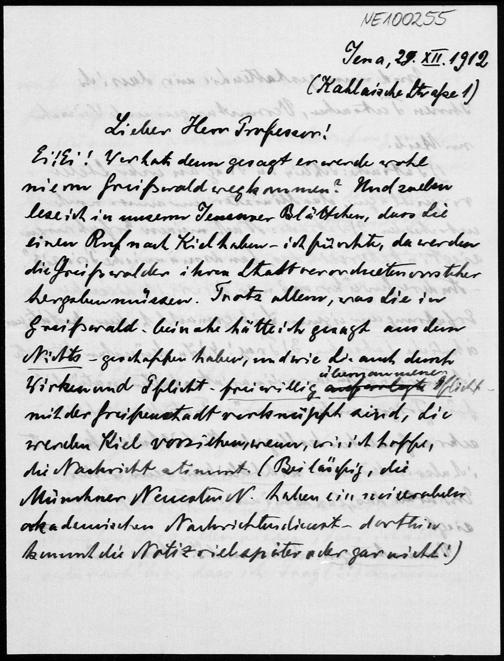 NE100255
Jena, 29. XII. 1912
(Kahlaische Straße 1)
Lieber Herr Professor!
Ei! Ei! Wer hat denn gesagt er werde wohl
nie von Greifswald wegkommen? Und soeben
lese ich in unserm Jenenser Blättchen, dass Sie
einen Ruf nach Kiel haben – ich fürchte, da werden
die Greifswalder ihren Stadtverordnetenvorsteher
hergeben müssen. Trotz allem, was Sie in
Greifswald – beinahe hätte ich gesagt aus dem
Nichts – geschaffen haben, und wie Sie auch durch
Wirken und Pflicht – freiwillig übernommene Pflicht –
mit der Greifenstadt verknüpft sind, Sie
werden Kiel vorziehen, wenn, wie ich hoffe,
die Nachricht stimmt. (Beiläufig, die
Münchner Neuesten N. haben ein miserabeln
akademischen Nachrichtendienst – dorthin
kommt die Notiz viel später oder gar nicht!)